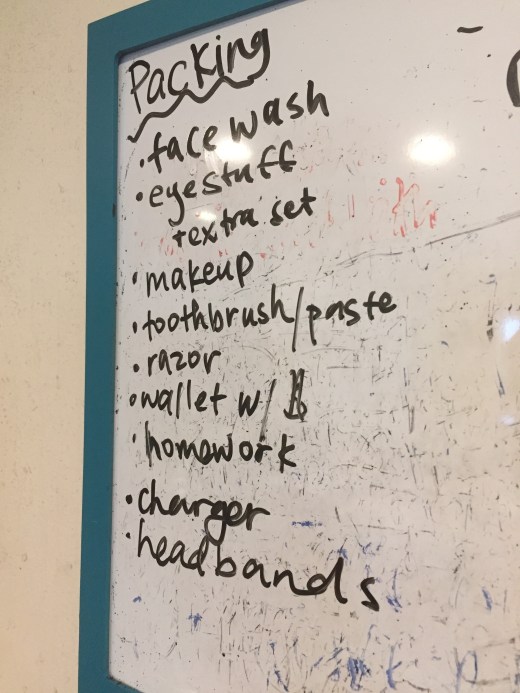 Packing
• face wash
• eyestuff
+extra set
• makeup
• toothbrush/paste
• razor
• wallet w/ $
• homework
• charger
• headbands